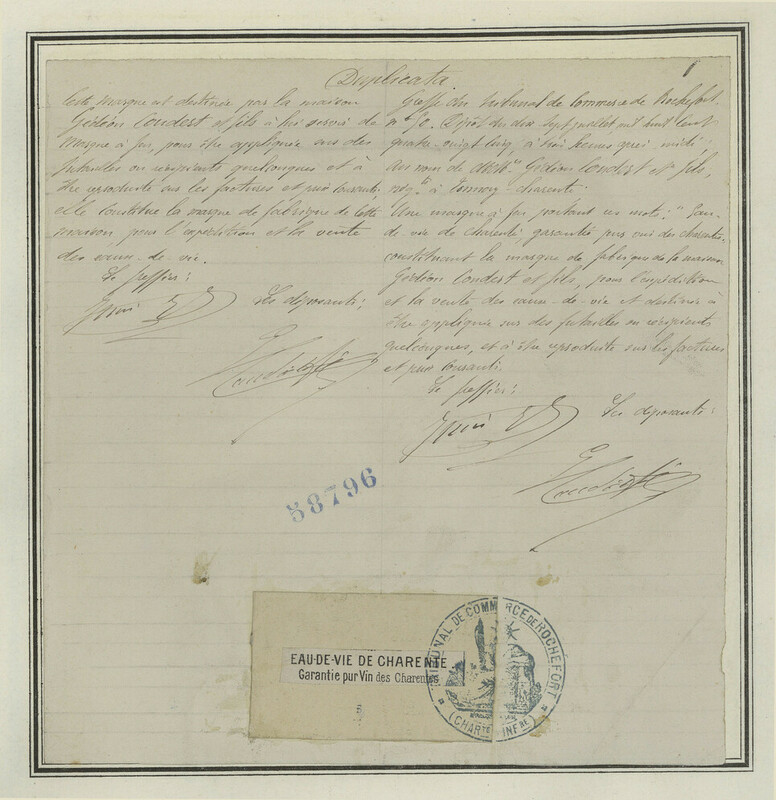 Duplicata
Cette marque est destinée par la maison
Gédéon Coudert et fils à lui servir de
marque à feu, pour être appliquée sur des
futailles ou récipients quelconques et à
être reproduite sur les factures et prix courants
elle constitue la marque de fabrique de cette
maison pour l'expédition et la vente
des eaux-de-vie.
Le greffier:
Les déposants:
Greffe du tribunal de Commerce de Rochefort.
Dépôt du dix sept juillet mil huit cent
quatre-vingt cinq, à trois heures après midi
au nom de Gédéon Coudert et fils,
à Tonnay-Charente.
Une marque à feu portant ces mots: "Eau-
de-vie de Charente garantie pur vin des Charentes
constituant la marque de fabrique de la maison
Gédéon Coudert et fils, pour l'expédition
et la vente des eaux-de-vie et destinée à
être appliquée sur des futailles ou récipients
quelconques, et à être reproduite sur les factures
et prix courants.
Le greffier:
Les déposants:
58796
EAU-DE-VIE DE CHARENTE
Garantie pur Vin des Charentes
TRIBUNAL DE COMMERCE DE ROCHEFORT
(CHARTE INFRE)